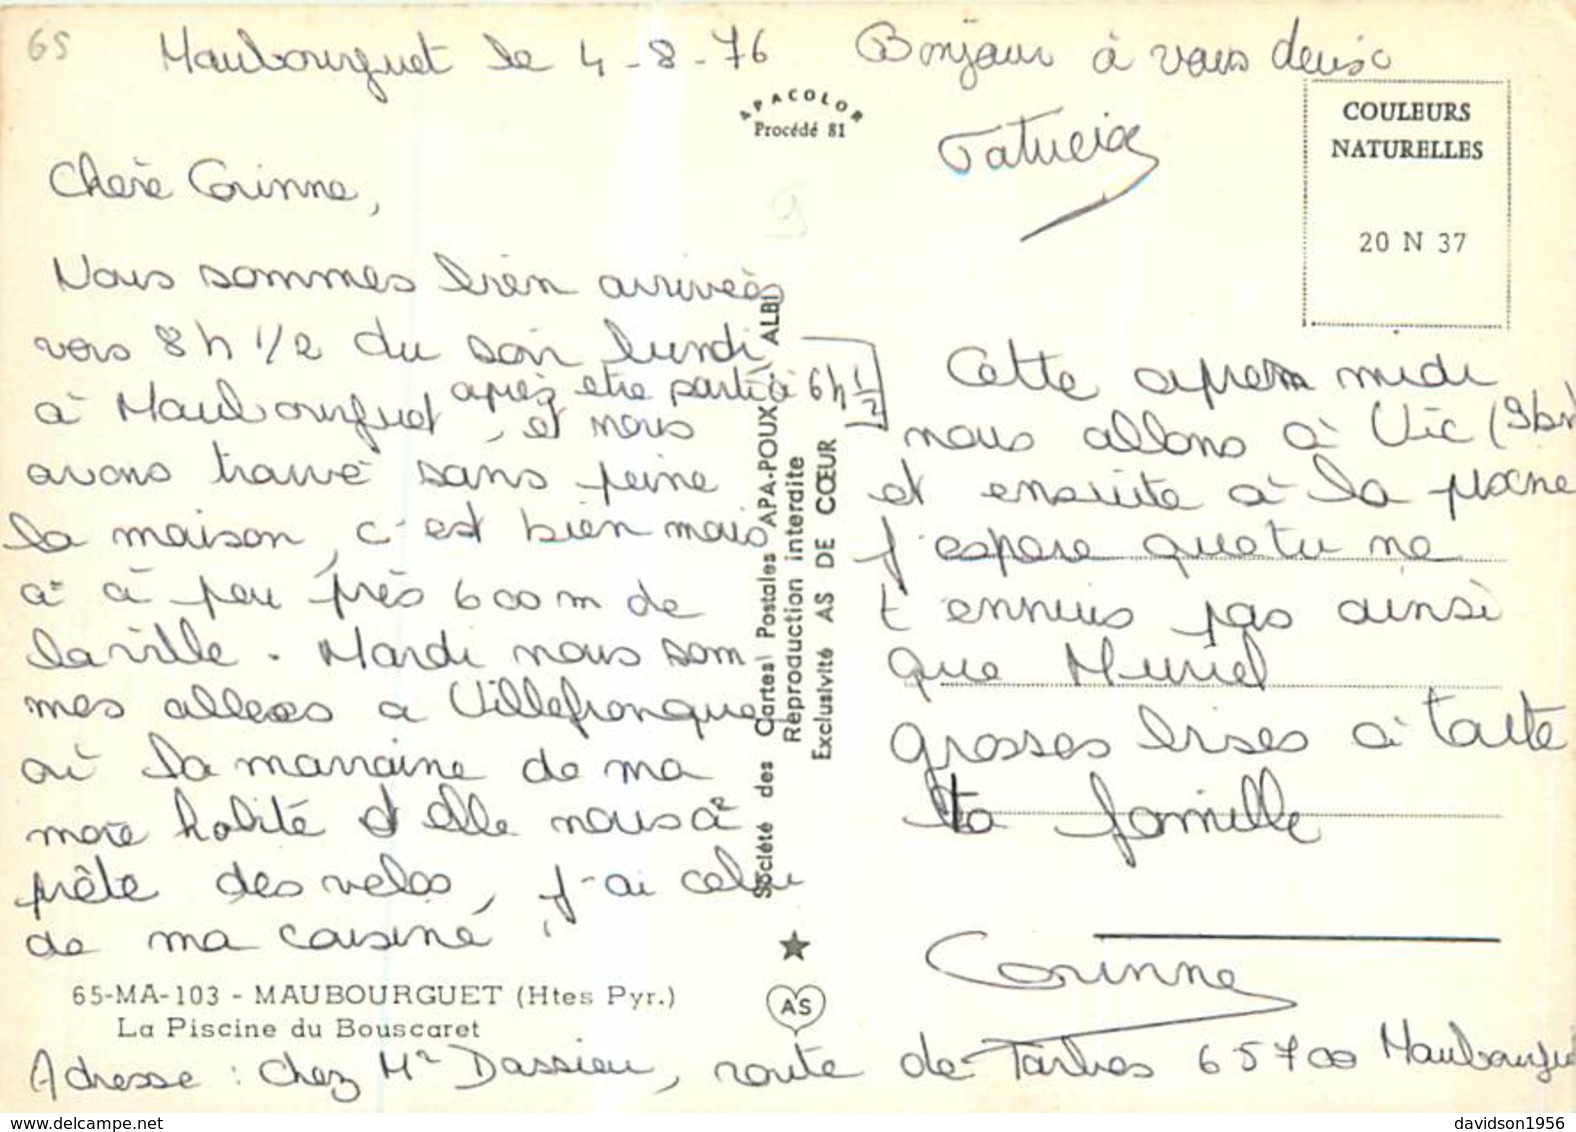 65
Maubourguet le 4-8-76
Bonjour à vous deux
Patricia
APACOLOR
Procédé 81
COULEURS
NATURELLES
20 N 37
9
Chère Corinne,
Nous sommes bien arrivées
vers 8h 1/2 du soir lundi
à Maubourguet, et nous
après etre parti à 6h 1/2
avons trouvé sans peine
la maison, c'est bien mais
à peu près 600m de
la ville. Mardi nous som-
mes allees a Villefranque
où la marraine de ma
mere habite et elle nous a
prête des velos, j'ai celui
de ma cousine.
Cette apres midi
nous allons à Vic (
et ensuite à la piscine
j'espere que tu ne
t'ennuis pas ainsi
que Muriel
grosses bises à toute
ta famille
Corinne
Société des Cartes Postales APA-POUX - ALBI
Reproduction interdite
Exclusivité AS DE CŒUR
AS
65-MA-103 - MAUBOURGUET (Htes Pyr.)
La Piscine du Bouscaret
Adresse : chez Mr Dassieu, route de Tarbes 65700 Maubourgue
davidson1956